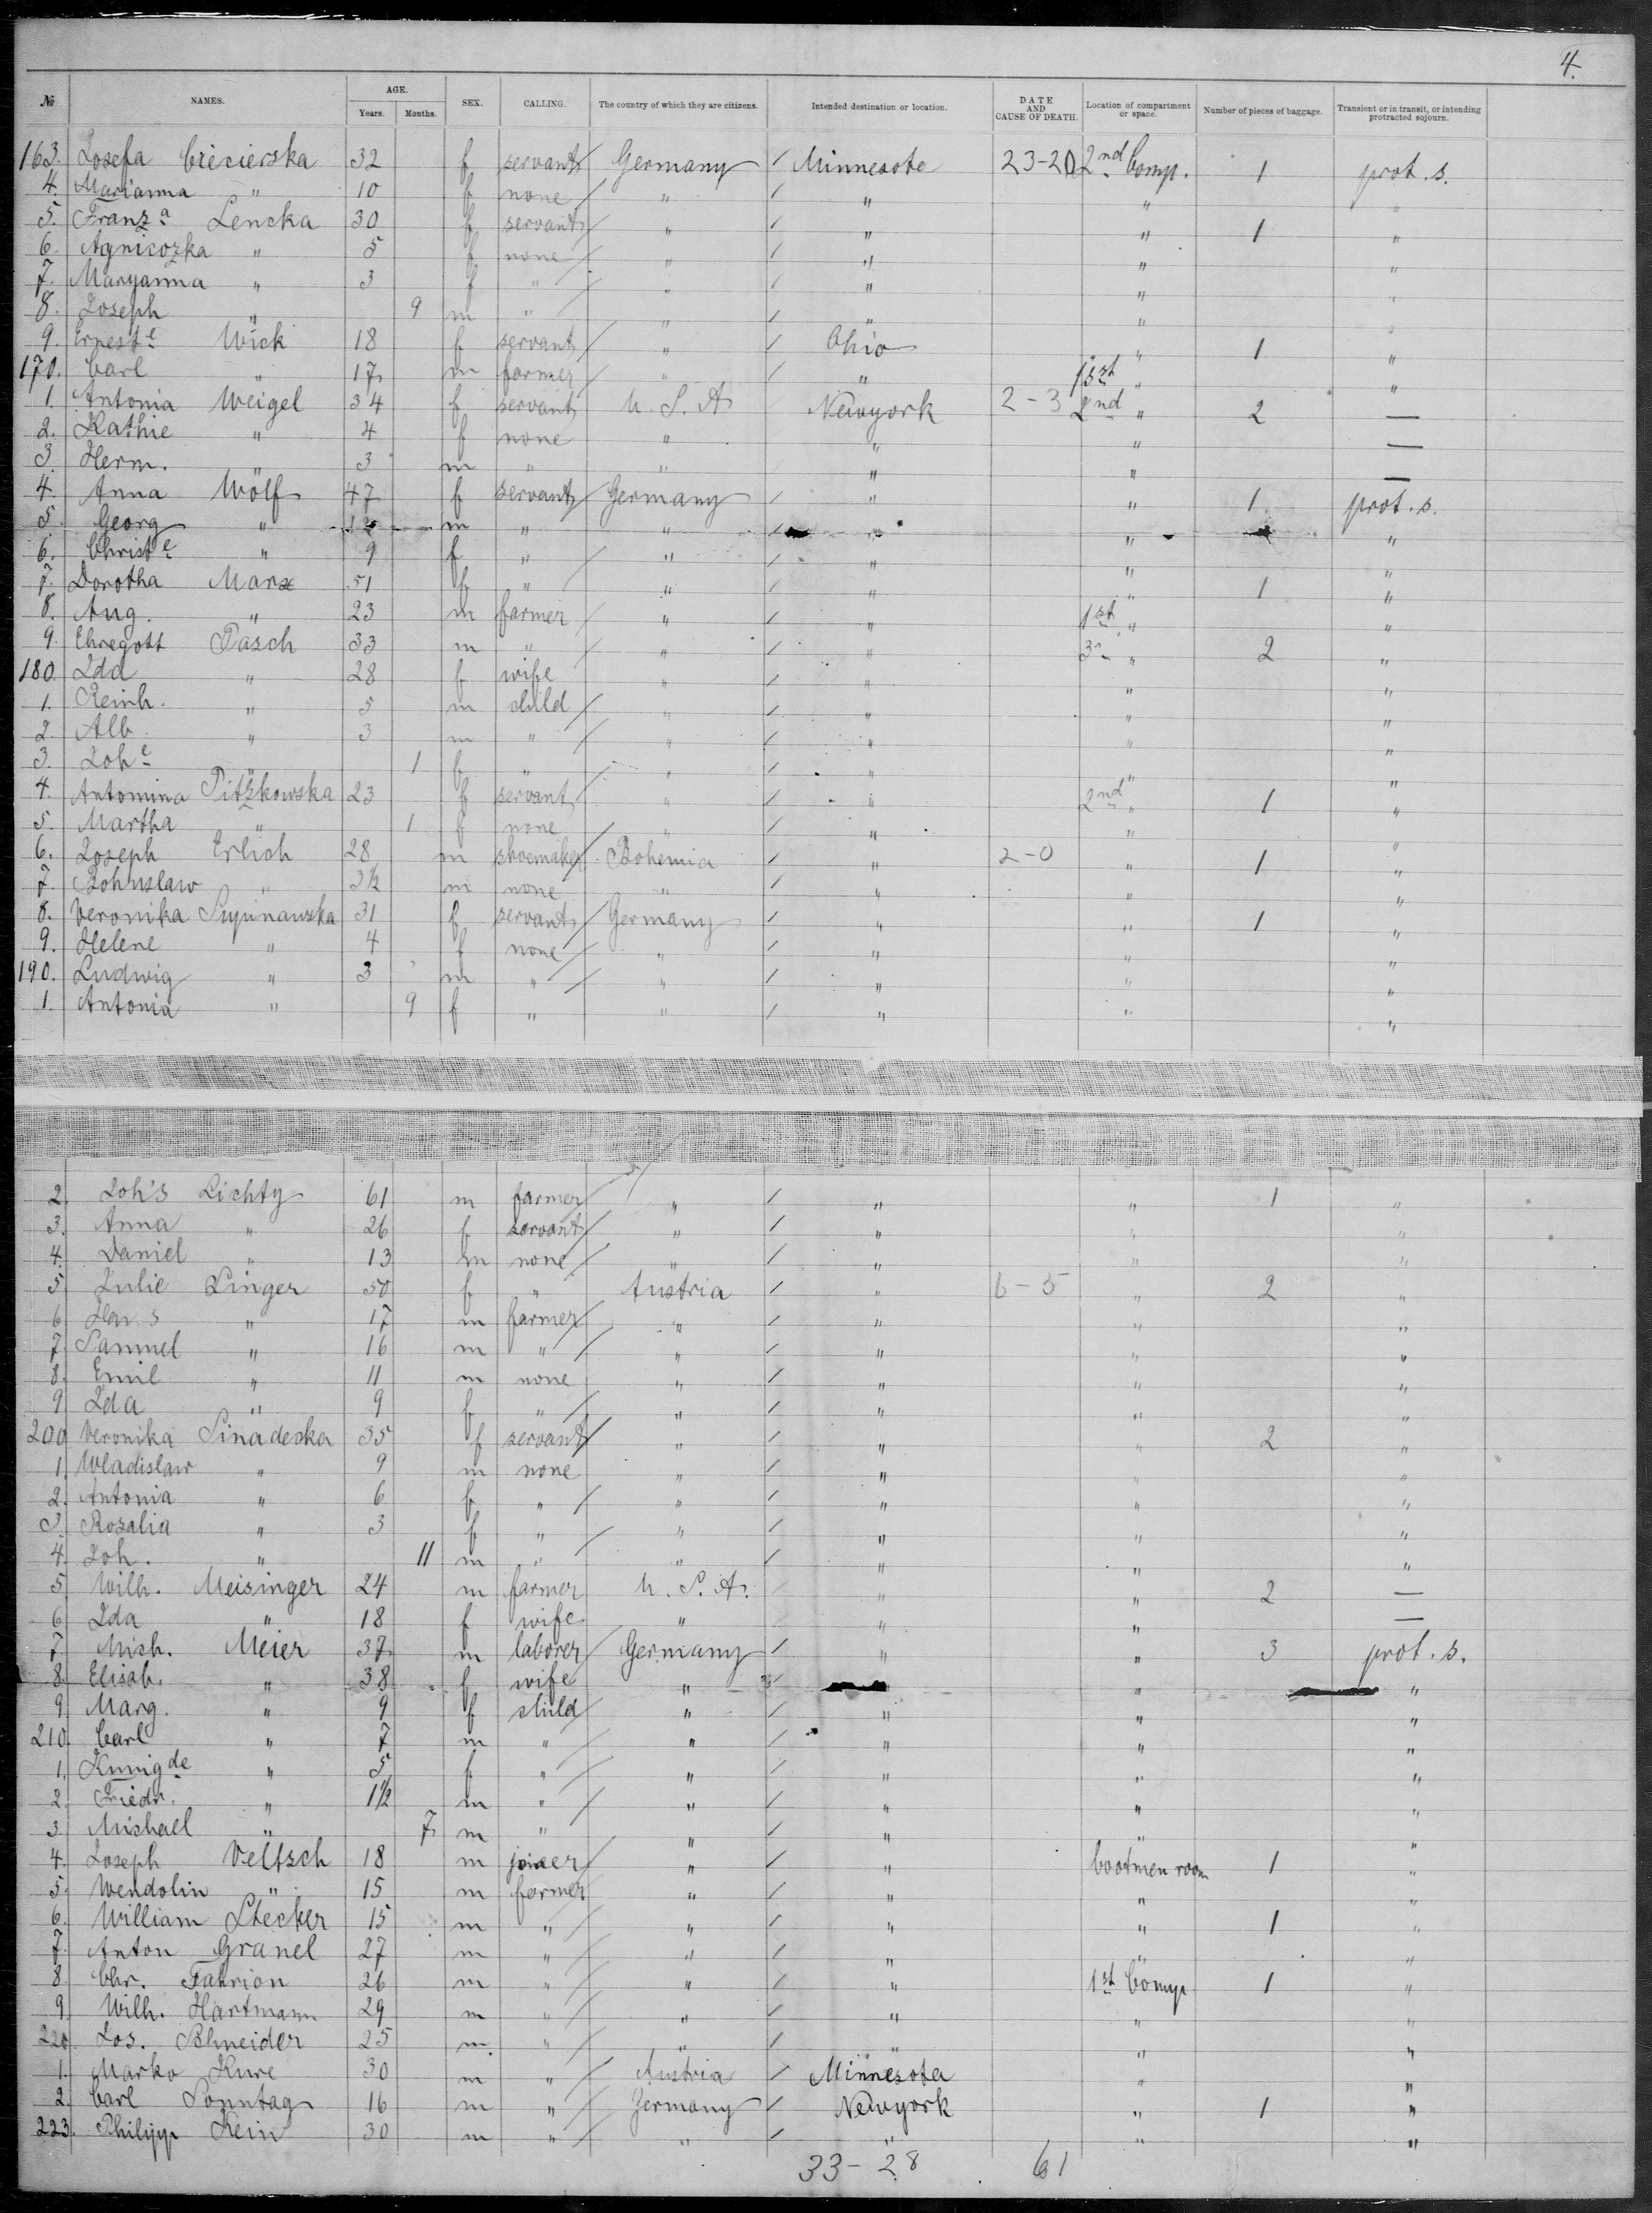 4.
№ NAMES. AGE. Years. Months. SEX. CALLING. The country of which they are citizens. Intended destination or location. DATE AND CAUSE OF DEATH. Location of compartment or space. Number of pieces of baggage. Transient or in transit, or intending protracted sojourn.
163. Josefa 32 f servant Germany / Minnesota 23-20 2nd Comp. 1 prot. s.
4. Marianna " 10 f none " / " " "
5. Franz a Lencka 30 f servant " / " " 1 "
6. Agniezka " 5 f none " / " " "
7. Maryanna " 3 f " " / " " "
8. Joseph " 9 m " " / " " "
9. Ernest e Wick 18 f servant " / Ohio " 1 "
170. Carl " 17 m farmer " / " 1st " "
1. Antonia Weigel 34 f servant U. S. A Newyork 2-3 2nd " 2 —
2. Kathie " 4 f none " " " —
3. Herm. " 3 m " " " " —
4. Anna Wolf 47 f servant Germany / " " 1 prot. s.
5. Georg " 12 m " " / " " "
6. Christ e " 9 f " " / " " "
7. Dorotha Marx 51 f " " / " " 1 "
8. Aug. " 23 m farmer " / " 1st " "
9. Ehregott Pasch 33 m " " / " 3 " 2 "
180. Ida " 28 f wife " / " " "
1. Reinh. " 5 m child " / " " "
2. Alb. " 3 m " " / " " "
3. Joh e " 1 f " " / " " "
4. Antomina Pitzkowska 23 f servant " / " 2nd " 1 "
5. Martha " 1 f none " / " " "
6. Joseph Erlich 28 m shoemaker Bohemia / " 2-0 " 1 "
7. Bohuslaw " 3½ m none " / " " "
8. Veronika Supinawska 31 f servant Germany / " " 1 "
9. Helene " 4 f none " / " " "
190. Ludwig " 3 m " " / " " "
1. Antonia " 9 f " " / " " "
2. Joh's Lichty 61 m farmer " / " " 1 "
3. Anna " 26 f servant " / " " "
4. Daniel " 13 m none " / " " "
5 Julie Linger 50 f " Austria / " 6-5 " 2 "
6 Hans " 17 m farmer " / " " "
7 Samuel " 16 m " " / " " "
8. Emil " 11 m none " / " " "
9 Ida " 9 f " " / " " "
200 Veronika Sinadeska 35 f servant " / " " 2 "
1. Wladislaw " 9 m none " / " " "
2. Antonia " 6 f " " / " " "
3 Rosalia " 3 f " " / " " "
4. Joh. " 11 m " " / " " "
5 Wilh. Meisinger 24 m farmer U. S. A. / " " 2 —
6 Ida " 18 f wife " " " —
7. Mich. Meier 37 m laborer Germany / " " 3 prot. s.
8. Elisab. " 38 f wife " / " "
9 Marg. " 9 f child " / " " "
210. Carl " 7 m " " / " " "
1. Kunig de " 5 f " " / " " "
2. Friedr. " 1½ m " " / " " "
3. Michael " 7 m " " / " " "
4. Joseph Veltsch 18 m joiner " / " bootmen room 1 "
5. Wendolin " 15 m farmer " / " " "
6. William Stecker 15 m " " / " " 1 "
7. Anton Granel 27 m " " / " " "
8. Chr. Fahrion 26 m " " / " 1st Comp 1 "
9. Wilh. Hartmann 29 m " " / " " "
220. Jos. Schneider 25 m. " " / " " "
1. Marko Kure 30 m " Austria / Minnesota " "
2. Carl Sonntag 16 m " Germany / Newyork " 1 "
223. Philipp Kein 30 m " " / " " "
33-28 61